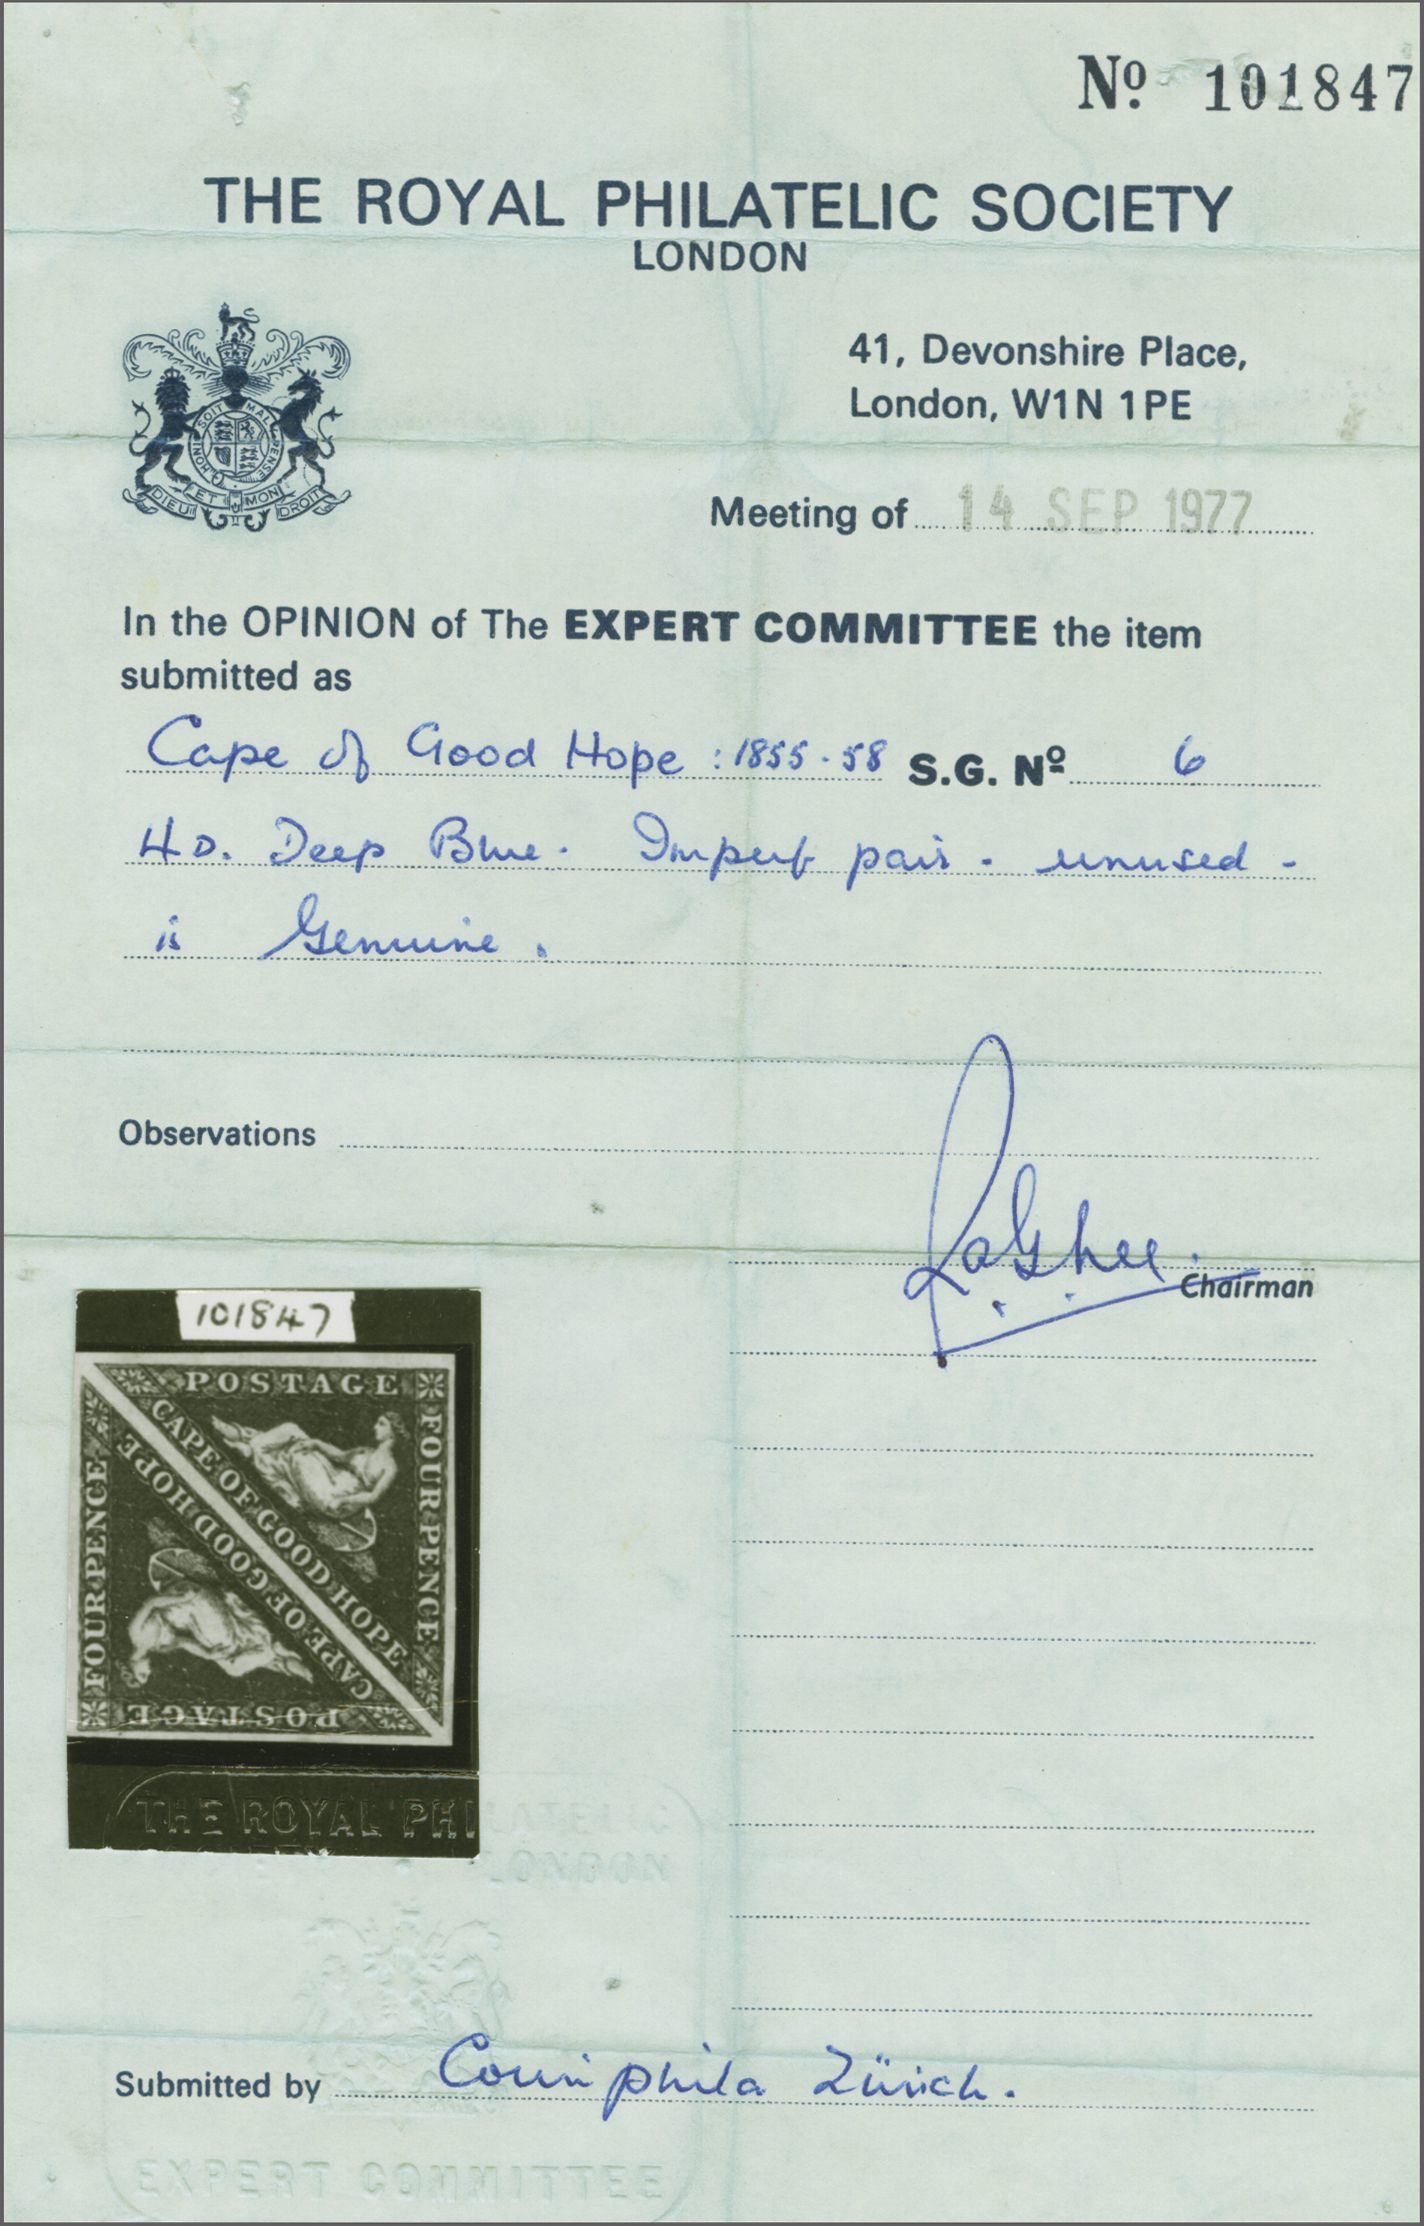 Nº 101847
THE ROYAL PHILATELIC SOCIETY
LONDON
41, Devonshire Place,
London, W1N 1PE
HONI SOIT MAL PENSE
DIEU ET MON DROIT
Meeting of 14 SEP 1977
In the OPINION of The EXPERT COMMITTEE the item
submitted as
Cape of Good Hope : 1855-58 S.G. Nº 6
4D. Deep Blue. Imperf pair - unused -
is Genuine.
Observations
Chairman
101847
POSTAGE
FOUR PENCE
CAPE OF GOOD HOPE
CAPE OF GOOD HOPE
FOUR PENCE
POSTAGE
THE ROYAL PHILATELIC
LONDON
Submitted by Corinphila Zürich.
EXPERT COMMITTEE